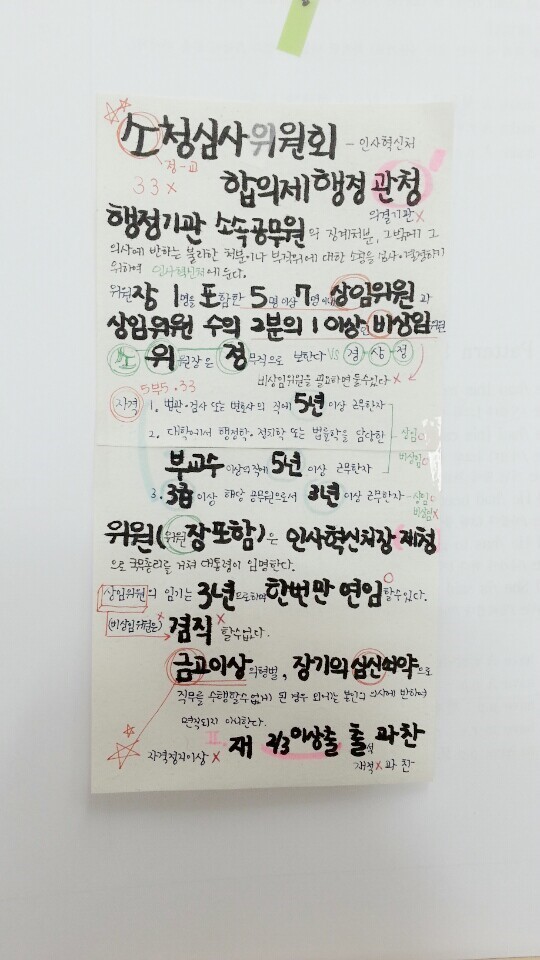 소청심사위원회 - 인사혁신처
정-교
33 X 합의제 행정 관청
의결기관 X
행정기관 소속공무원의 징계처분, 그밖에 그
의사에 반하는 불리한 처분이나 부작위에 대한 소청을 심사·결정하기
위하여 인사혁신처에 둔다.
위원장 1명을 포함한 5명 이상 7명 이내 상임위원과
상임위원 수의 2분의 1 이상인 비상임위원
소 위원장은 정무직으로 보한다 VS 경 상 정
비상임위원을 필요하면 둘수있다 X
5부5·33
자격 1. 법관·검사 또는 변호사의 직에 5년 이상 근무한자
2. 대학에서 행정학·정치학 또는 법률학을 담당한
부교수 이상의 직에 5년 이상 근무한자
상임O
비상임O
3. 3급 이상 해당 공무원으로서 3년 이상 근무한자 - 상임O
비상임X
위원(위원장포함)은 인사혁신처장 제청
으로 국무총리를 거쳐 대통령이 임명한다.
상임위원의 임기는 3년으로하며 한번만 연임 할수있다. O
(비상임위원은) X 겸직 X 할수없다.
금고이상의 형벌, 장기의 심신쇠약으로
직무를 수행할수 없게 된 경우 외에는 본인의 의사에 반하여
면직되지 아니한다.
II. 재 2/3 이상출 출석 과찬
자격정지이상 X 재적 X 과 찬